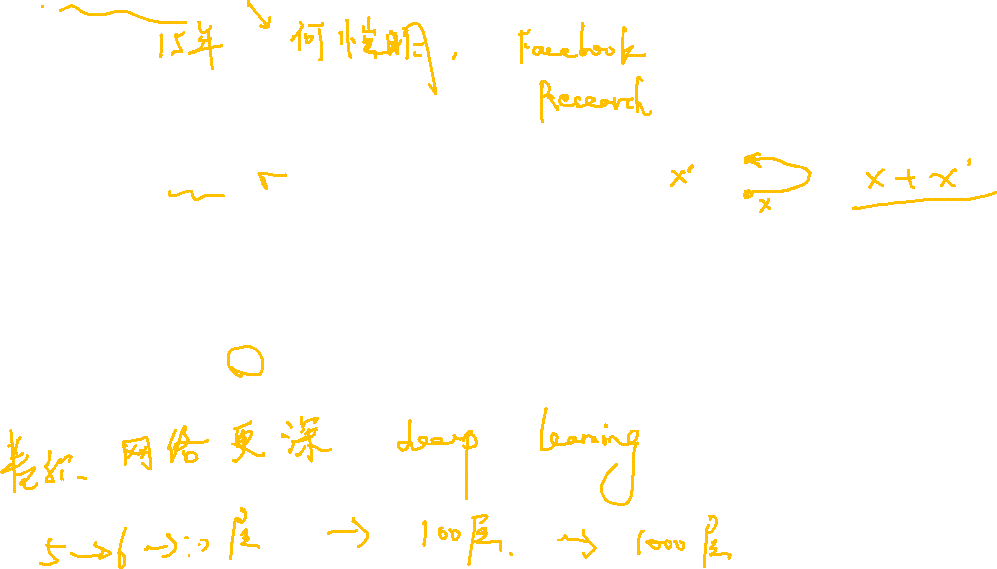 15年 何恺明, Facebook
Research
x' x x + x'
网络更深 deep learning
5→6→ 层 → 100层. → 1000层